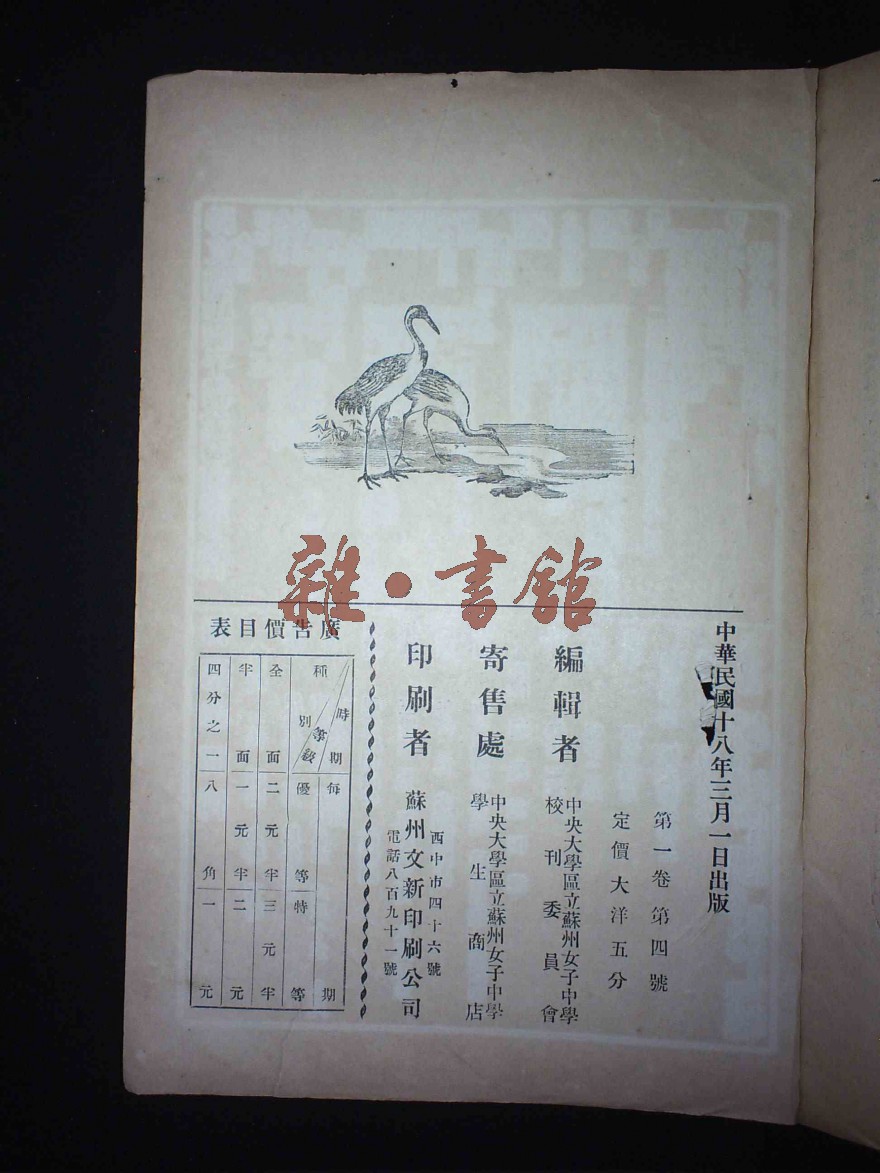 雜·書館
中華民國十八年三月一日出版
第一卷第四號
定價大洋五分
編輯者
中央大學區立蘇州女子中學
校刊委員會
寄售處
中央大學區立蘇州女子中學
學生商店
印刷者
西中市四十六號
蘇州文新印刷公司
電話八百九十一號
廣告價目表
時期 每期
種別 等第 優等 特等
全面 二元半 三元半
半面 一元半 二元
四分之一 八角 一元